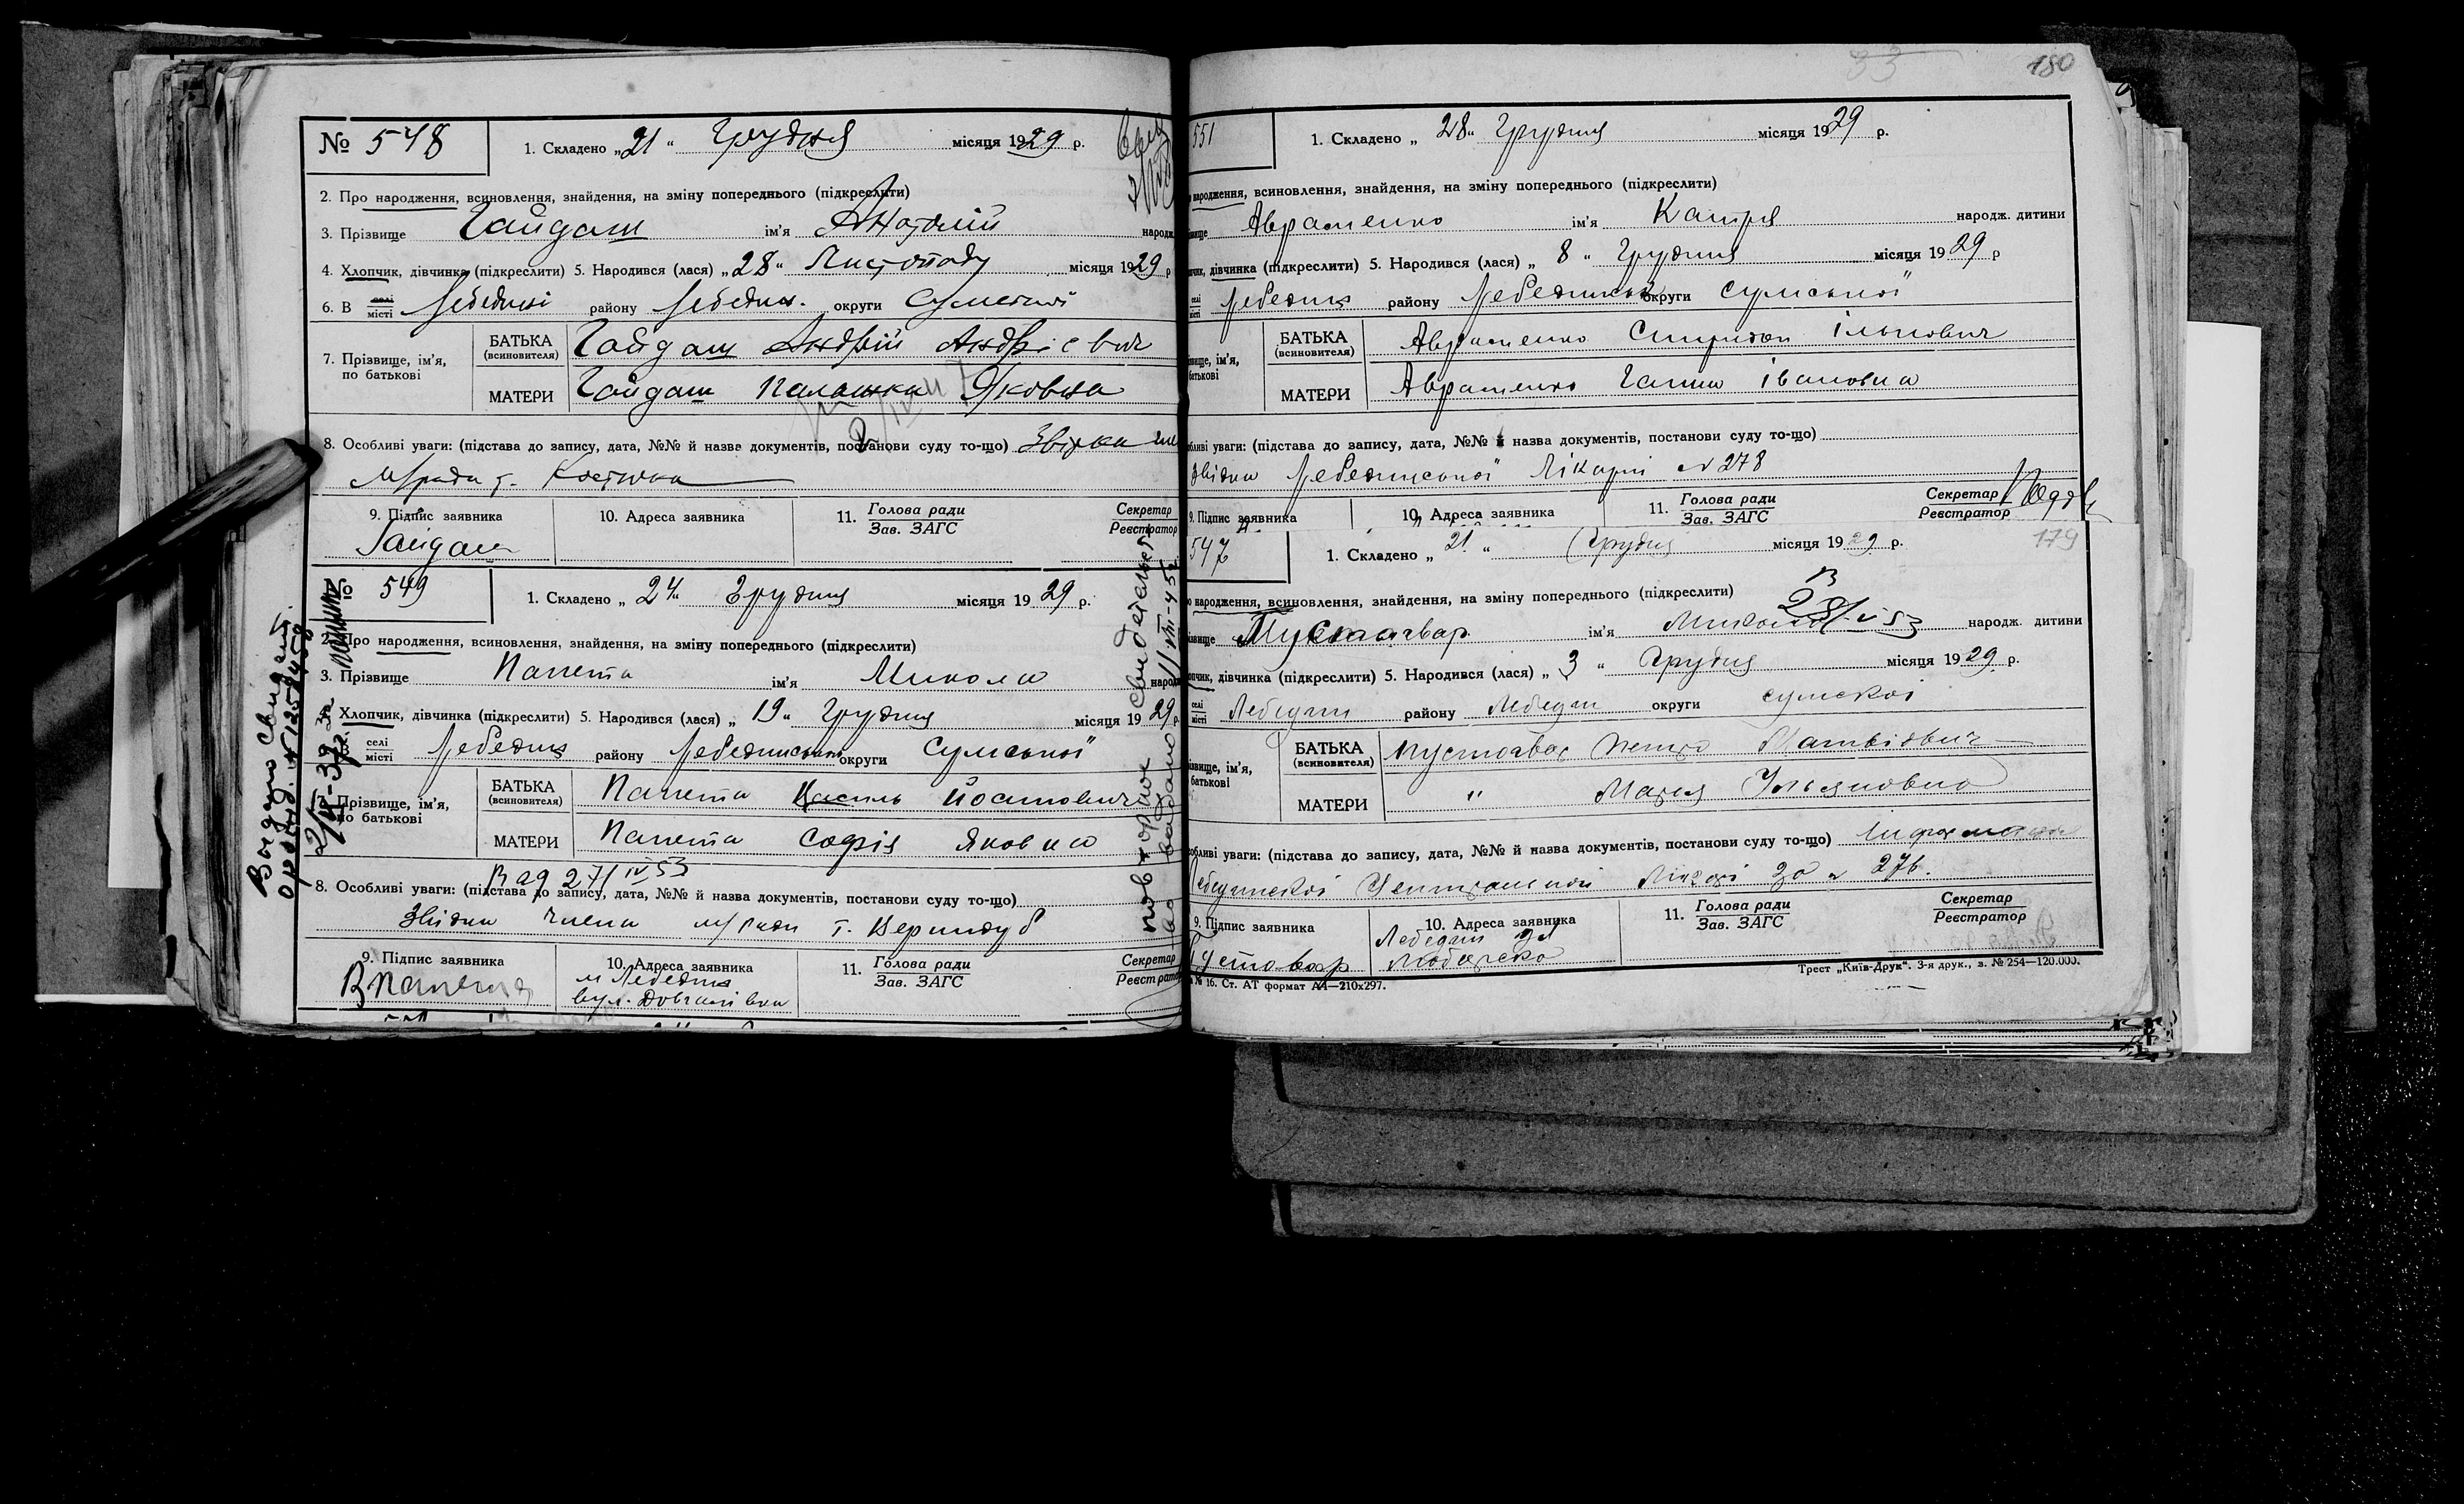 № 548
1. Складено „21“ Грудня місяця 1929 р.
2. Про народження, всиновлення, знайдення, на зміну попереднього (підкреслити)
3. Прізвище Гайдаш ім'я Анатолій народж.
4. Хлопчик, дівчинка (підкреслити) 5. Народився (лася) „28“ Листопаду місяця 1929 р
6. В селі місті Лебедині району Лебедин. округи Сумської
7. Прізвище, ім'я, по батькові
БАТЬКА (всиновителя) Гайдаш Андрій Андрієвич
МАТЕРИ Гайдаш Палашка Яковна
8. Особливі уваги: (підстава до запису, дата, №№ й назва документів, постанови суду то-що) Звідка
М/ради т. Костюка
9. Підпис заявника 10. Адреса заявника 11. Голова ради Зав. ЗАГС Секретар Реєстратор
Гайдаш
№ 549
1. Складено „24“ Грудня місяця 1929 р.
2. Про народження, всиновлення, знайдення, на зміну попереднього (підкреслити)
3. Прізвище Папета ім'я Микола народж
4. Хлопчик, дівчинка (підкреслити) 5. Народився (лася) „19“ Грудня місяця 1929 р.
селі місті Лебедин району Лебединськ округи Сумської
Прізвище, ім'я, по батькові
БАТЬКА (всиновителя) Папета Василь Йосипович
МАТЕРИ Папета Софія Яковна
В ад 27/IV 53
8. Особливі уваги: (підстава до запису, дата, №№ й назва документів, постанови суду то-що)
Звідки члена м/ради т. Вернидуб
9. Підпис заявника 10. Адреса заявника 11. Голова ради Зав. ЗАГС Секретар Реєстратор
В Папета м Лебедин
вул.
Выдано свидет.
повторное свидетельст
выдано 11/VIII-45
180
551
1. Складено „28“ Грудня місяця 1929 р.
народження, всиновлення, знайдення, на зміну попереднього (підкреслити)
Авраменко ім'я Катря народж. дитини
дівчинка (підкреслити) 5. Народився (лася) „8“ Грудня місяця 1929 р
селі місті Лебедин району Лебединськ округи Сумської
БАТЬКА (всиновителя) Авраменко Спиридон Ількович
МАТЕРИ Авраменко Ганна Івановна
уваги: (підстава до запису, дата, №№ й назва документів, постанови суду то-що)
Звідка Лебединської Лікарні N 278
9. Підпис заявника 10. Адреса заявника 11. Голова ради Зав. ЗАГС Секретар Реєстратор
547
1. Складено „21“ Грудня місяця 1929 р.
179
народження, всиновлення, знайдення, на зміну попереднього (підкреслити)
В 28/V 53
Пустовар ім'я Микола народж. дитини
дівчинка (підкреслити) 5. Народився (лася) „3“ Грудня місяця 1929 р.
селі місті Лебедин району Лебедин округи Сумскоі
БАТЬКА (всиновителя) Пустовар Петро Матвієвич
МАТЕРИ " Марія
уваги: (підстава до запису, дата, №№ й назва документів, постанови суду то-що)
Лебединскоі Центральной за N 276.
9. Підпис заявника 10. Адреса заявника 11. Голова ради Зав. ЗАГС Секретар Реєстратор
Пустовар Лебедин
№ 16. Ст. АТ формат А4—210х297.
Трест „Київ-Друк“. 3-я друк., з. № 254—120.000.